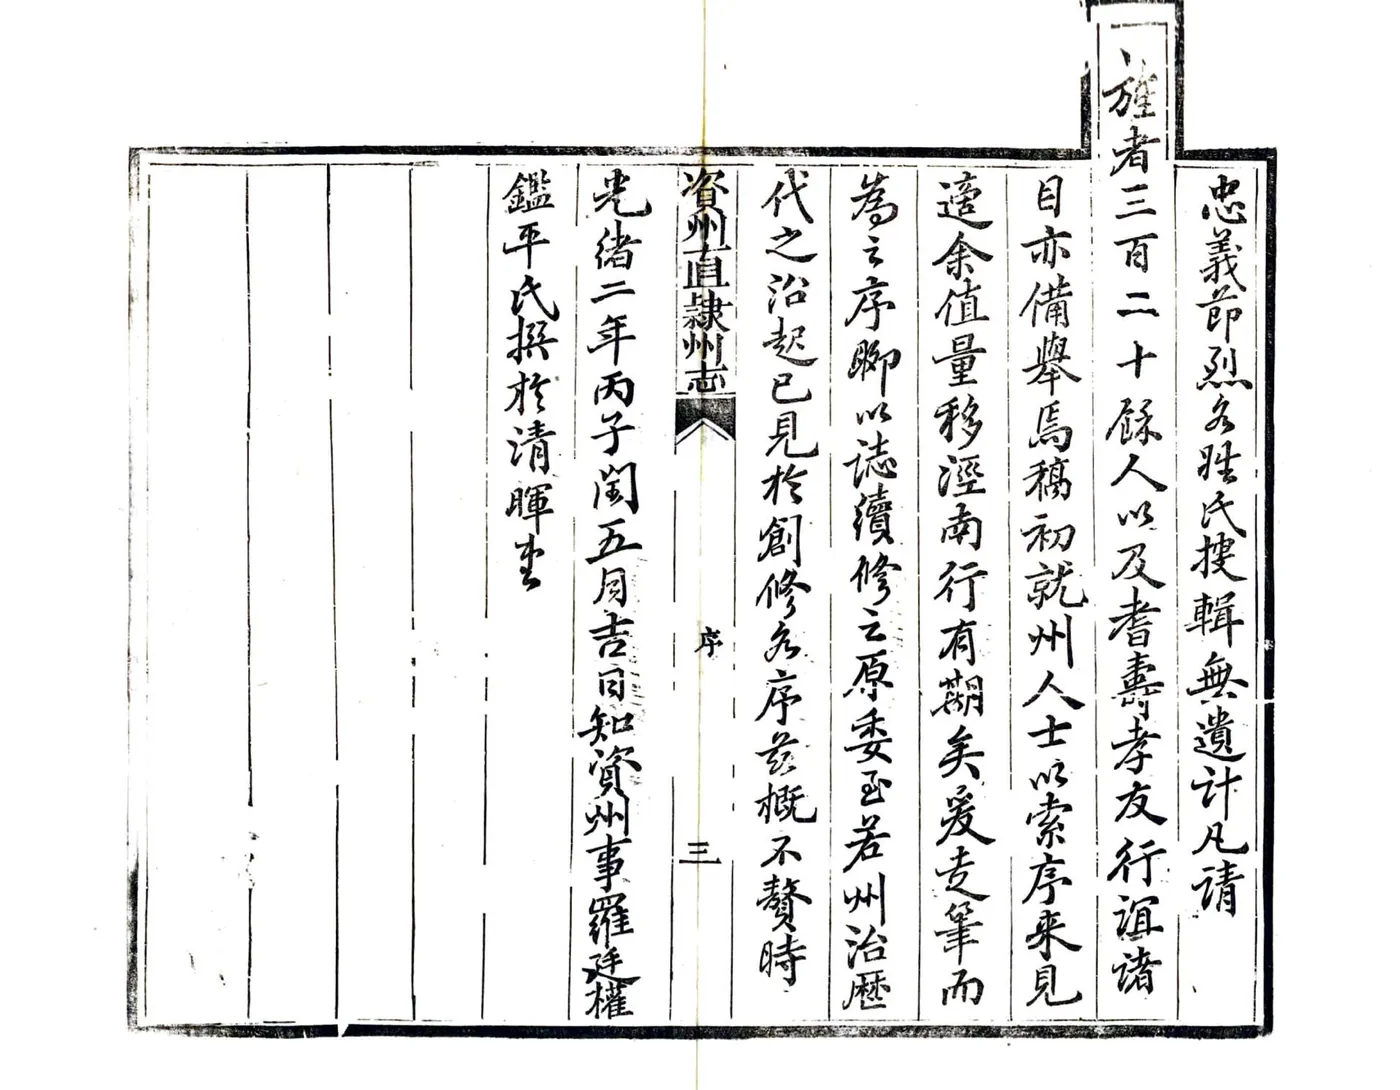 忠義節烈各姓氏搜輯無遺計凡請
旌者三百二十餘人以及耆壽孝友行誼諸
目亦備舉焉稿初就州人士以索序来見
適余值量移涇南行有期矣爰走筆而
為之序聊以誌續修之原委至若州治歷
代之沿起已見於創修各序茲概不贅時
資州直隸州志
序
三
光緒二年丙子閏五月吉日知資州事羅廷權
鑑平氏撰於清暉堂